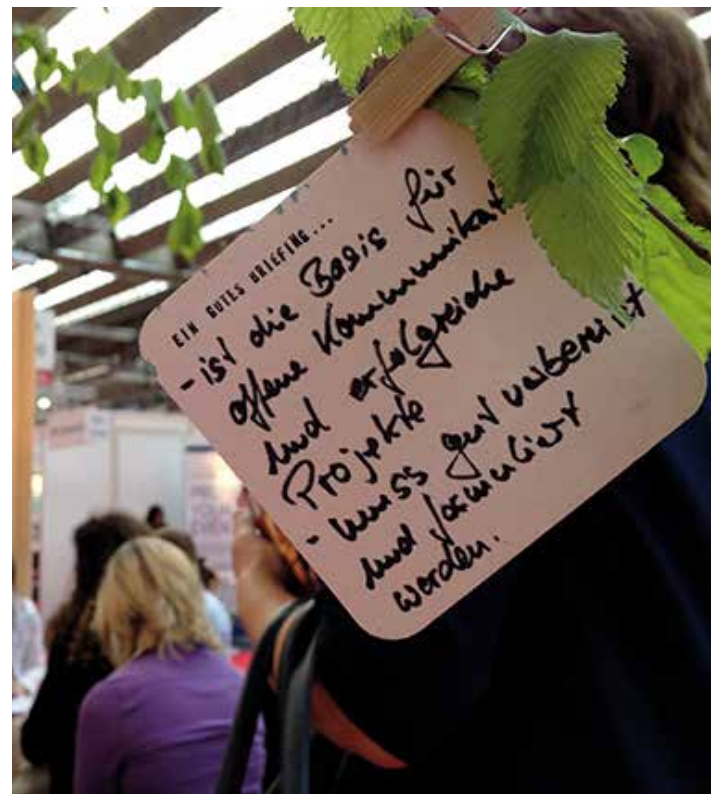 EIN GUTES BRIEFING...
- ist die Basis für
offene Kommunikat
und erfolgreiche
Projekte
- muss gut vorbereitet
und formuliert
werden.